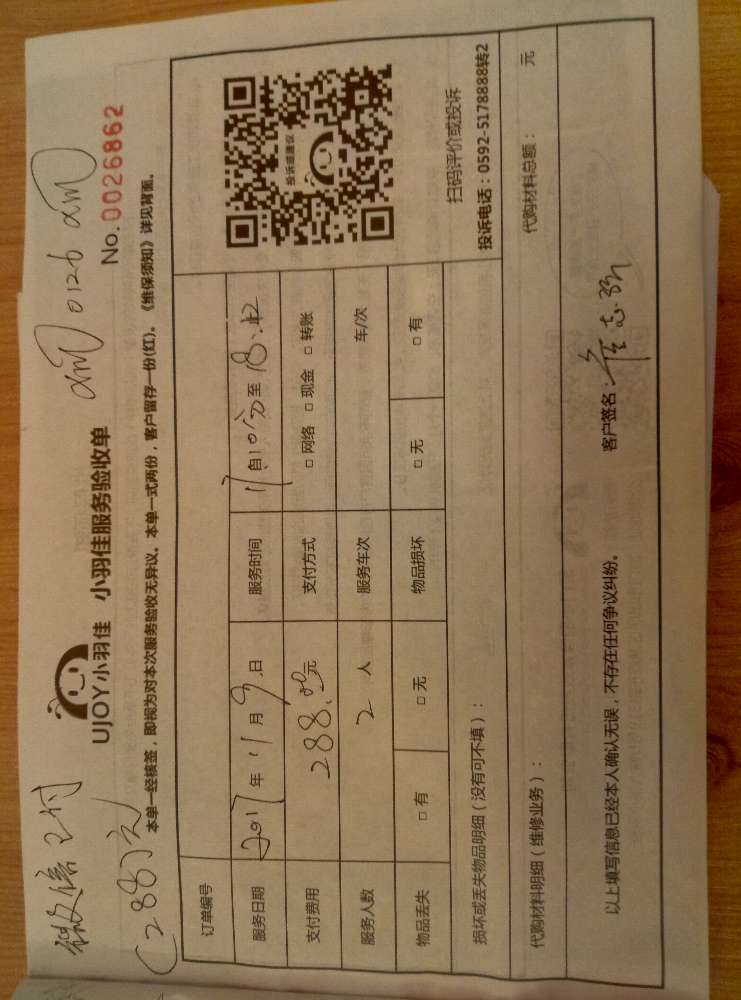 微信支付
(288元)
0126
UJOY小羽佳 小羽佳服务验收单
No.0026862
本单一经核签，即视为对本次服务验收无异议。本单一式两份，客户留存一份(红)。《维保须知》详见背面。
订单编号
服务日期 2017年11月9日 服务时间 自 至
支付费用 288.00元 支付方式 □ 网络 □ 现金 □ 转账
服务人数 2 人 服务车次 车/次
物品丢失 □ 有 □ 无 物品损坏 □ 无 □ 有
投诉或建议
扫码评价或投诉
投诉电话：0592-5178888转2
损坏或丢失物品明细（没有可不填）：
代购材料明细（维修业务）： 代购材料总额： 元
以上填写信息已经本人确认无误，不存在任何争议纠纷。 客户签名：